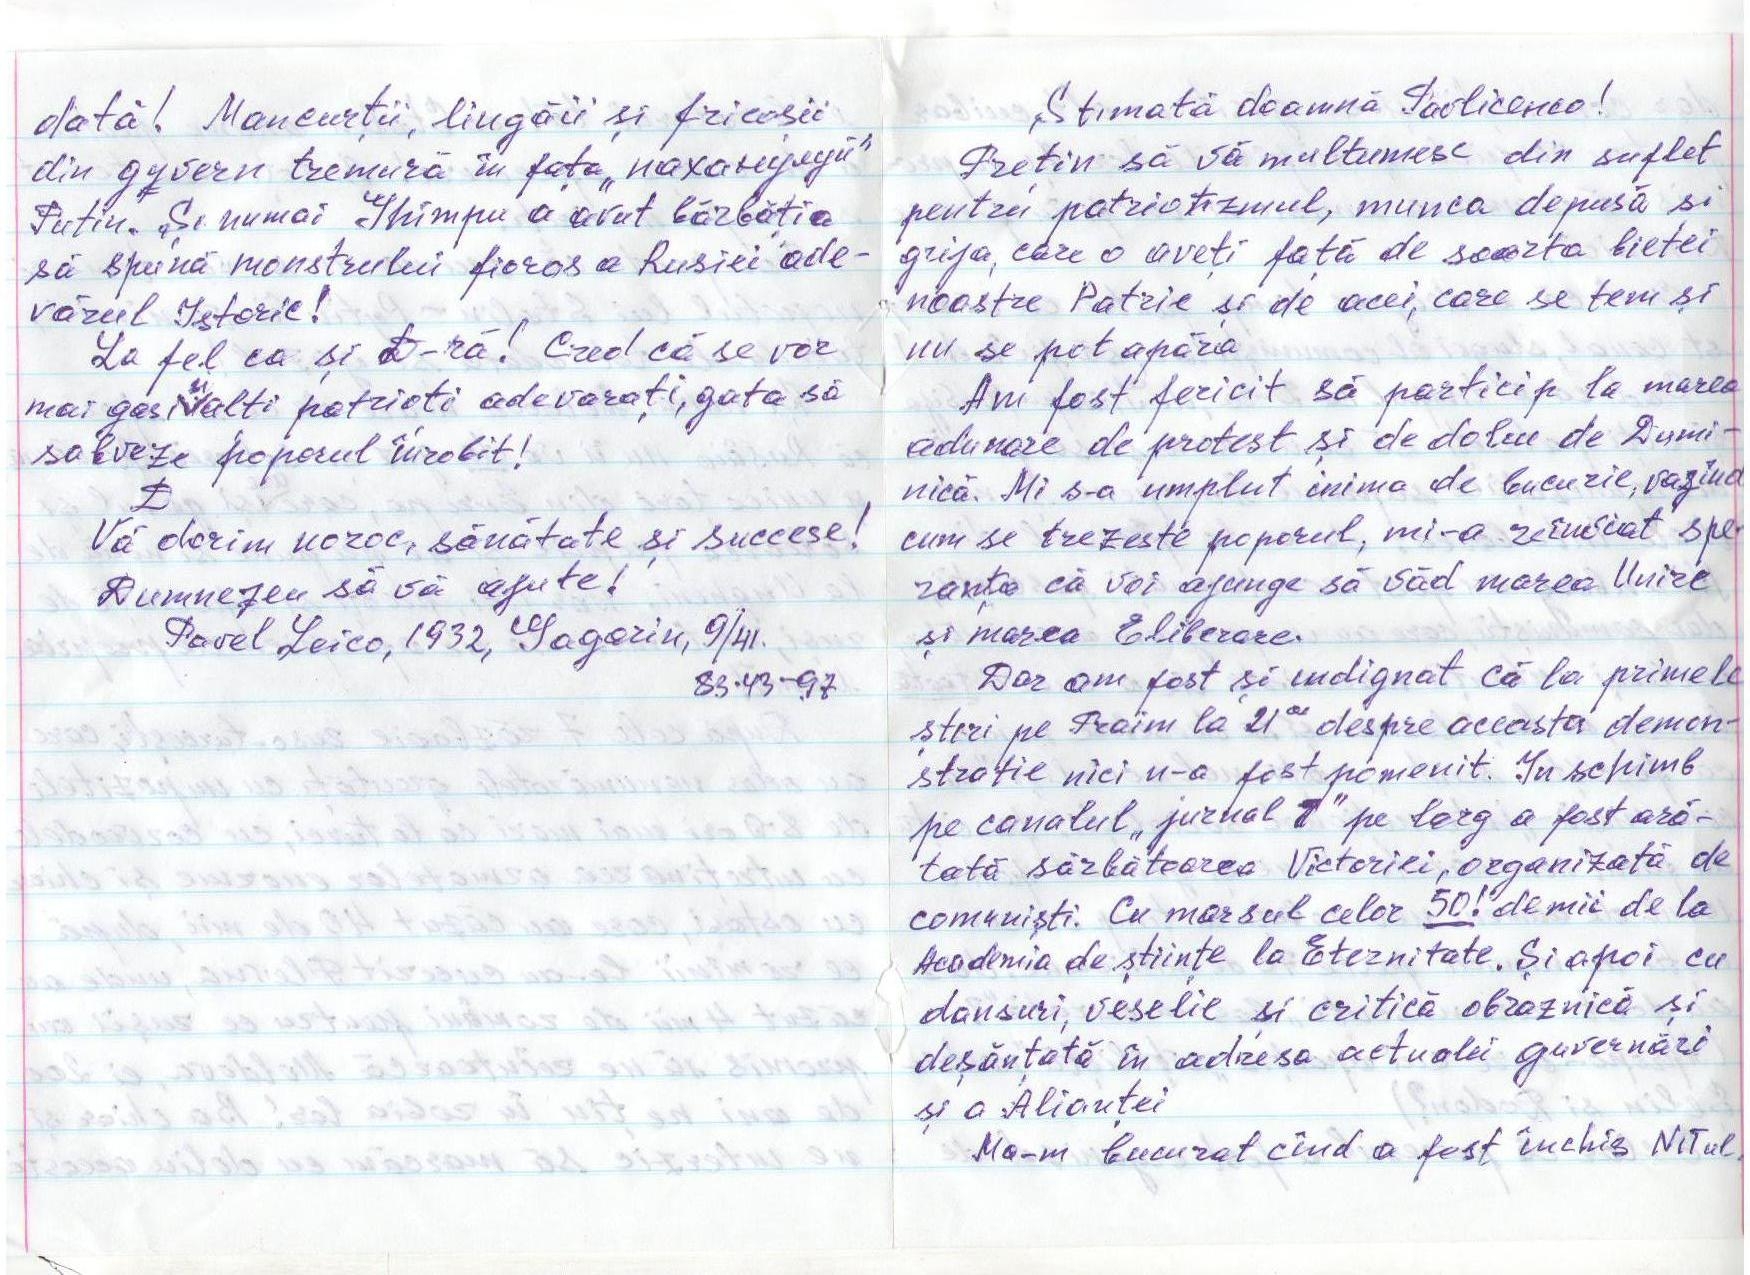 dată! Mancurții, lingăii și fricoșii
din guvern tremură în fața
Putin. Și numai Ghimpu a avut bărbăția
să spună monstrului fioros a Rusiei ade-
vărul Istoric!
La fel ca și D-ră! Cred că se vor
mai găsi și alți patrioți adevarați, gata să
salveze poporul înrobit!
D
Vă dorim noroc, sănătate și succese!
Dumnezeu să vă ajute!
Pavel Leico, 1932, Gagarin, 9/41.
83-43-97
Stimată doamnă Pavlicenco!
Pretin să vă multumesc din suflet
pentru patriotizmul, munca depusă si
grija, care o aveți față de soarta bietei
noastre Patrie și de acei, care se tem și
nu se pot apăra
Am fost fericit să particip la marea
adunare de protest și de doliu de Dumi-
nică. Mi s-a umplut inima de bucurie, vazînd
cum se trezeste poporul, mi-a reînviat spe-
ranța că voi ajunge să văd marea Unire
și marea Eliberare.
Dar am fost și indignat că la primele
știri pe Praim la 21 despre aceasta demon-
stratie nici n-a fost pomenit. In schimb
pe canalul „jurnal T" pe larg a fost ară-
tată sărbătoarea Victoriei, organizată de
comuniști. Cu marsul celor 50! de mii de la
Academia de științe la Eternitate. Și apoi cu
dansuri, veselie și critică obraznică și
deșănțată în adresa actualei guvernări
și a Alianței
Ma-m bucurat cînd a fost închis NITul.